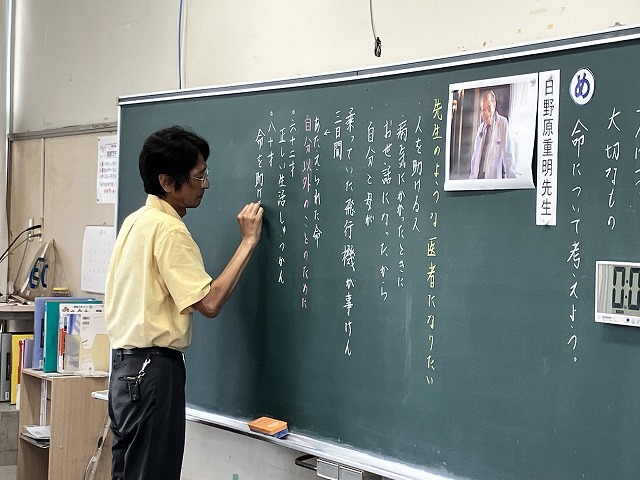 大切なもの
め
命について考えよう。
日野原重明先生
先生のような医者になりたい
・人を助ける人
・病気にかかったときに
お世話になったから
・自分と母が
乗っていた飛行機が事けん
三日間
あたえられた命
自分以外のことのために
正しい生活しゅうかん
・八十才
命を助け
0:0